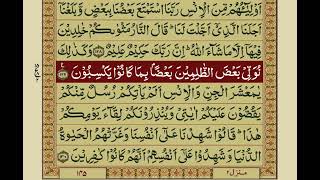 اَوْلِیٰٓـُٔهُمْ مِّنَ الْاِنْسِ رَبَّنَا اسْتَمْتَعَ بَعْضُنَا بِبَعْضٍ وَّبَلَغْنَاۤ
اَجَلَنَا الَّذِیْۤ اَجَّلْتَ لَنَا ؕ قَالَ النَّارُ مَثْوٰىكُمْ خٰلِدِیْنَ
فِیْهَاۤ اِلَّا مَا شَآءَ اللّٰهُ ؕ اِنَّ رَبَّكَ حَكِیْمٌ عَلِیْمٌ ﴿۱۲۸﴾ وَكَذٰلِكَ
نُوَلِّیْ بَعْضَ الظّٰلِمِیْنَ بَعْضًۢا بِمَا كَانُوْا یَكْسِبُوْنَ ﴿۱۲۹﴾
یٰمَعْشَرَ الْجِنِّ وَالْاِنْسِ اَلَمْ یَاْتِكُمْ رُسُلٌ مِّنْكُمْ
یَقُصُّوْنَ عَلَیْكُمْ اٰیٰتِیْ وَیُنْذِرُوْنَكُمْ لِقَآءَ یَوْمِكُمْ
هٰذَا ؕ قَالُوْا شَهِدْنَا عَلٰۤی اَنْفُسِنَا وَغَرَّتْهُمُ الْحَیٰوةُ
الدُّنْیَا وَشَهِدُوْا عَلٰۤی اَنْفُسِهِمْ اَنَّهُمْ كَانُوْا كٰفِرِیْنَ ﴿۱۳۰﴾
۱۴۵
منزل ۲